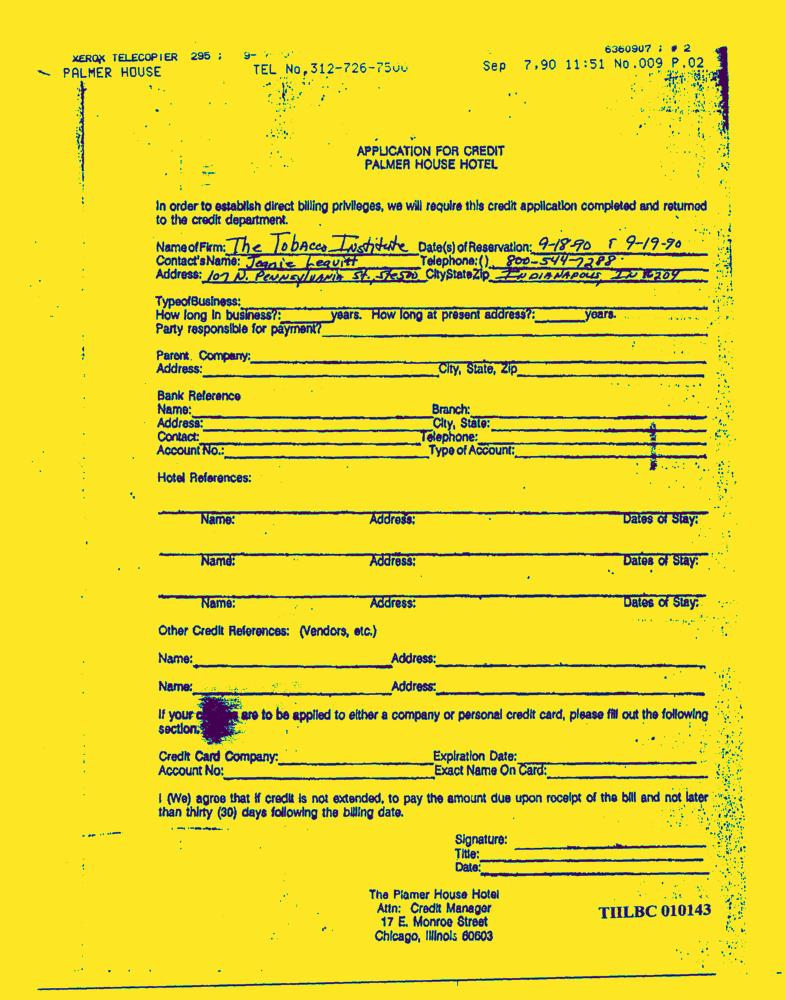 XEROX TELECOPIER 295 ; 9- 6360907 ; # 2
PALMER HOUSE TEL No.312-726-7500 Sep 7,90 11:51 No.009 P.02
APPLICATION FOR CREDIT
PALMER HOUSE HOTEL
In order to establish direct billing privileges, we will require this credit application completed and returned
to the credit department.
Name of Firm: The Tobacco Institute Date(s) of Reservation: 9-18-90 & 9-19-90
Contact's Name: Jeanie Leavitt Telephone:() 800-544-7288
Address: 107 N. Pennsylvania St. Ste500 CityStateZip Indianapolis, IN 46204
TypeofBusiness:
How long in business?: years. How long at present address?: years.
Party responsible for payment?
Parent. Company:
Address: City, State, Zip
Bank Reference
Name: Branch:
Address: City, State:
Contact: Telephone:
Account No.: Type of Account:
Hotel References:
Name: Address: Dates of Stay:
Name: Address: Dates of Stay:
Name: Address: Dates of Stay:
Other Credit References: (Vendors, etc.)
Name: Address:
Name: Address:
If your are to be applied to either a company or personal credit card, please fill out the following
section.
Credit Card Company: Expiration Date:
Account No: Exact Name On Card:
I (We) agree that if credit is not extended, to pay the amount due upon receipt of the bill and not later
than thirty (30) days following the billing date.
Signature:
Title:
Date:
The Plamer House Hotel
Attn: Credit Manager
17 E. Monroe Street
Chicago, Illinois 60603
TIILBC 010143